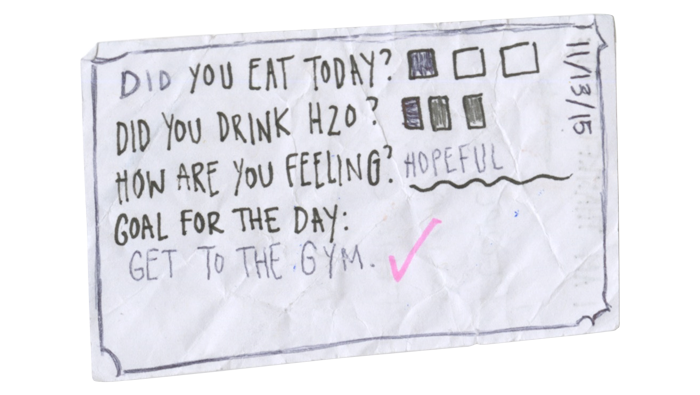 DID YOU EAT TODAY?
DID YOU DRINK H2O?
HOW ARE YOU FEELING? HOPEFUL
GOAL FOR THE DAY:
GET TO THE GYM.
11/13/15